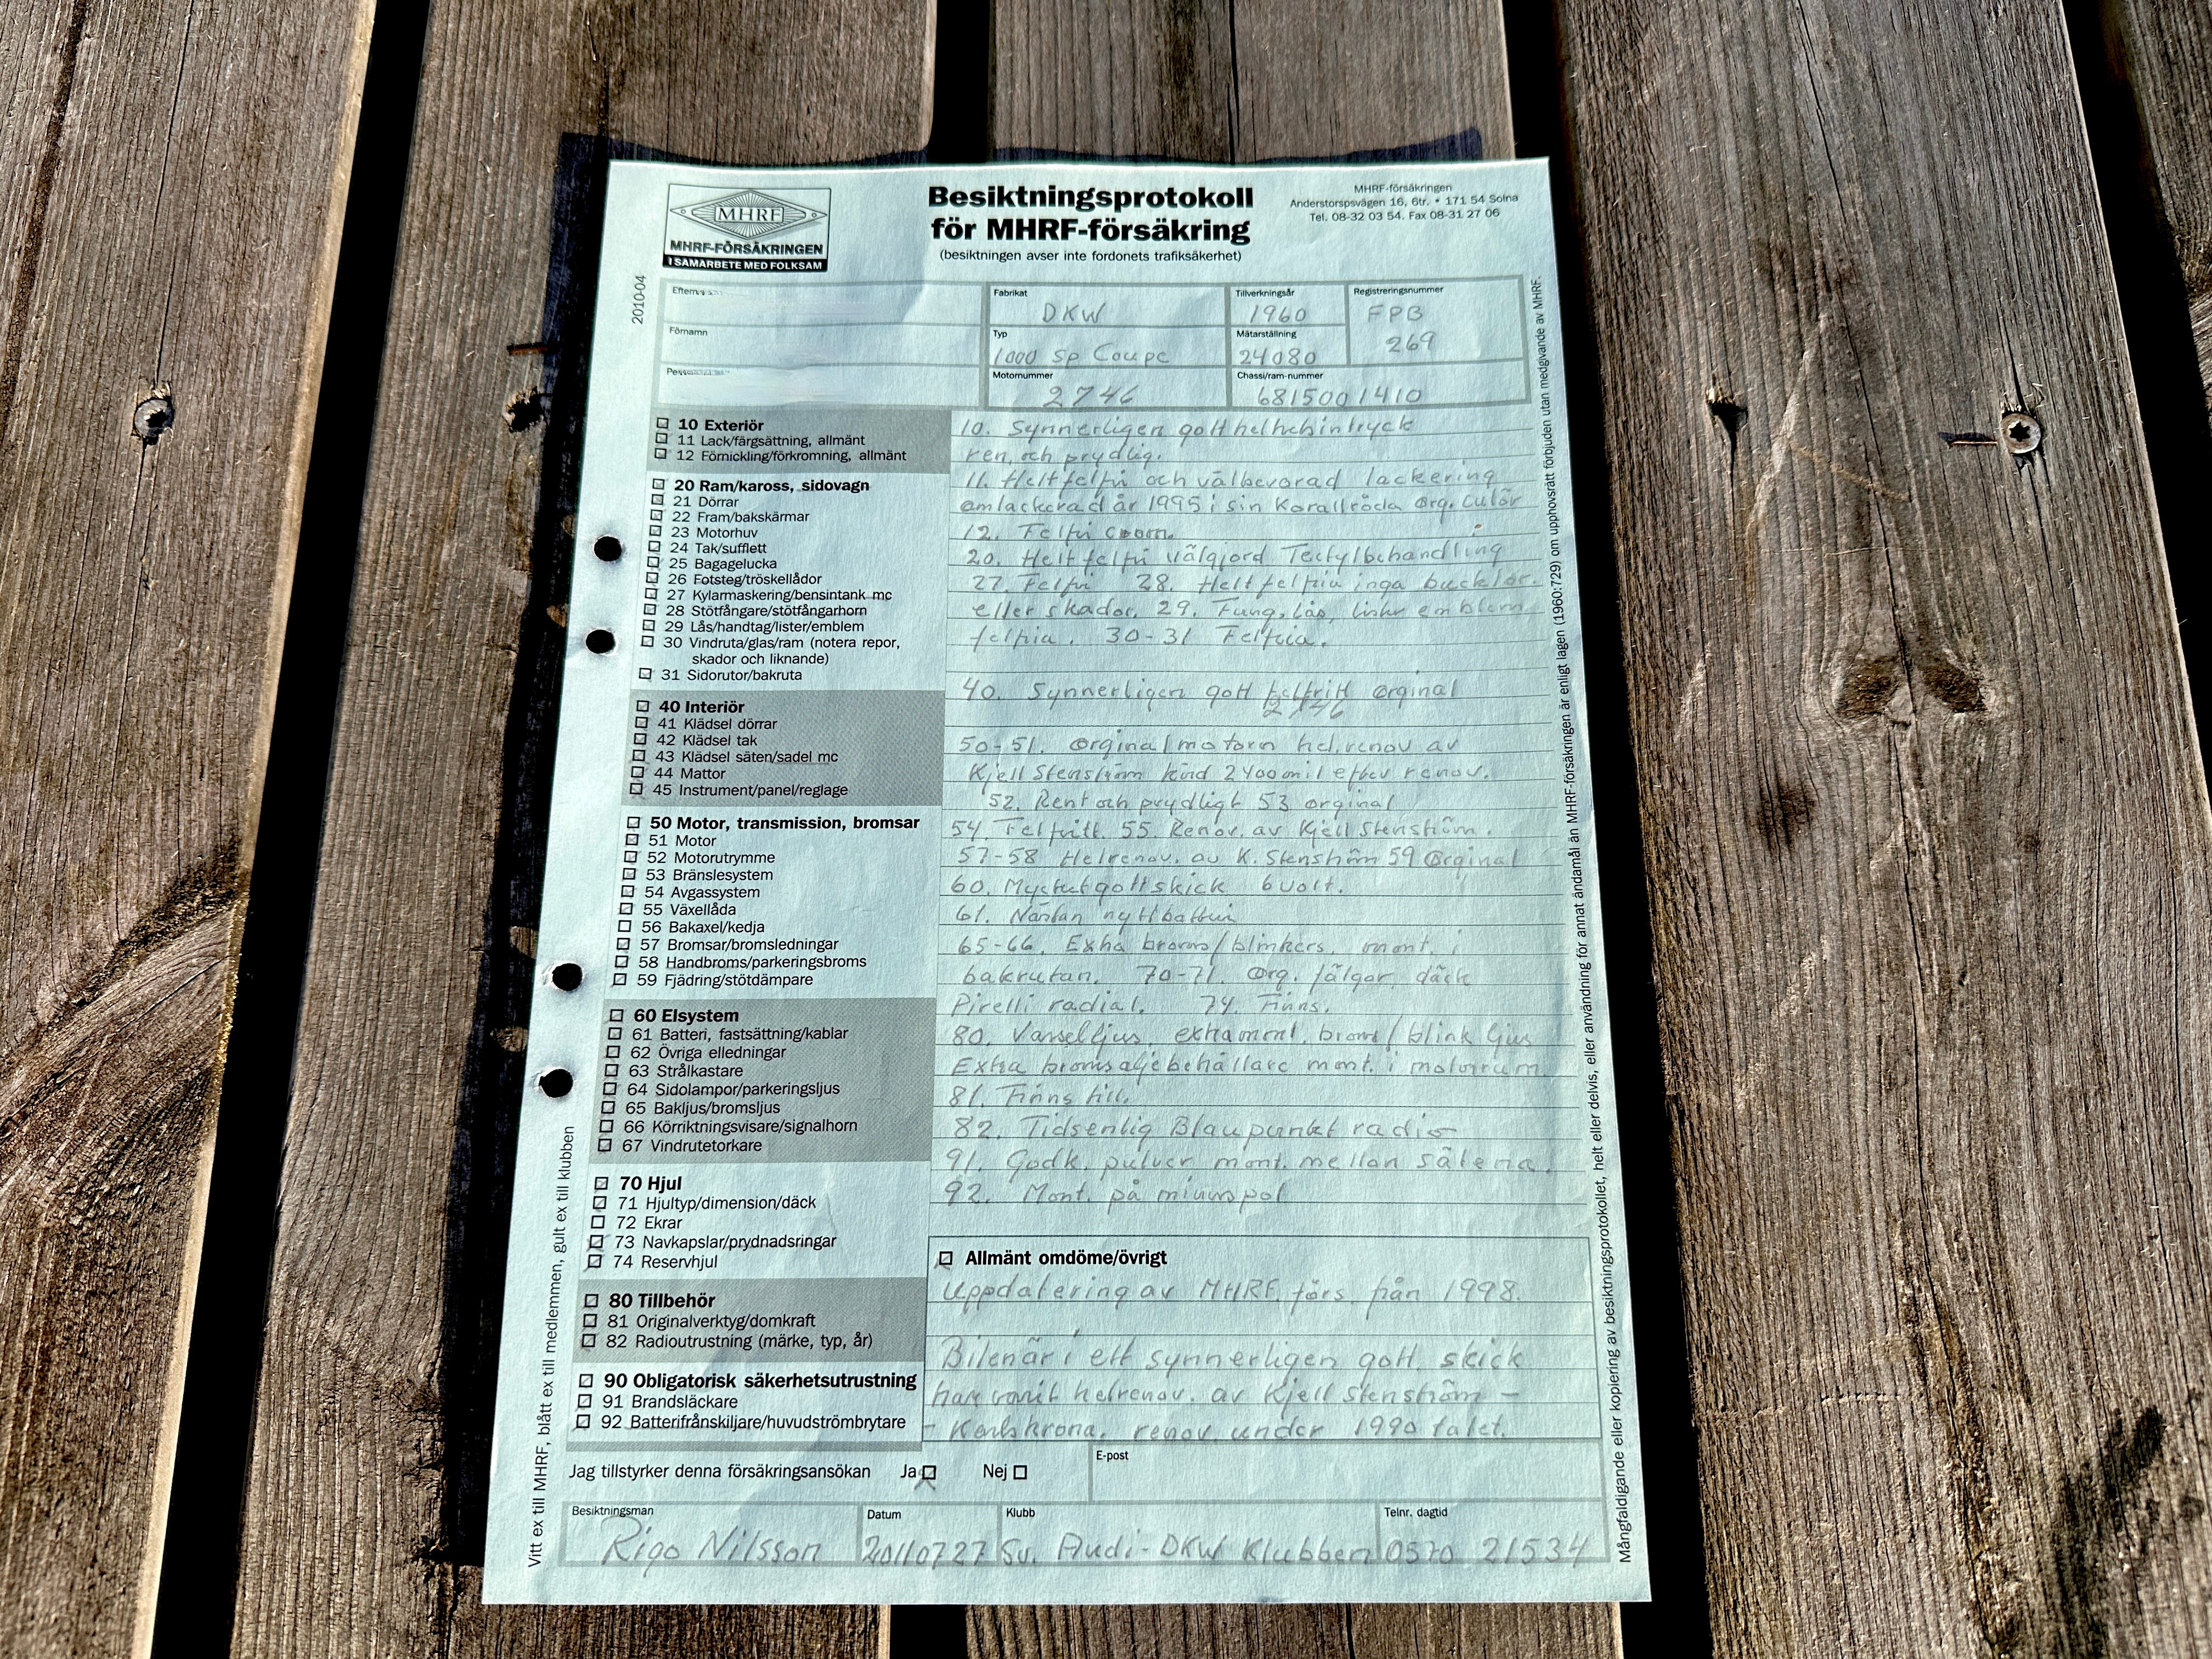 MHRF
MHRF-FÖRSÄKRINGEN
I SAMARBETE MED FOLKSAM
Besiktningsprotokoll
för MHRF-försäkring
(besiktningen avser inte fordonets trafiksäkerhet)
MHRF-försäkringen
Anderstorpsvägen 16, 6tr. • 171 54 Solna
Tel. 08-32 03 54. Fax 08-31 27 06
2010-04
Förnamn
Fabrikat
DKW
Tillverkningsår
1960
Registreringsnummer
FPB
269
Typ
1000 Sp Coupe
Mätarställning
24080
Motornummer
2746
Chassi/ram-nummer
6815001410
10 Exteriör
11 Lack/färgsättning, allmänt
12 Förnickling/förkromning, allmänt
20 Ram/kaross, sidovagn
21 Dörrar
22 Fram/bakskärmar
23 Motorhuv
24 Tak/sufflett
25 Bagagelucka
26 Fotsteg/tröskellådor
27 Kylarmaskering/bensintank mc
28 Stötfångare/stötfångarhorn
29 Lås/handtag/lister/emblem
30 Vindruta/glas/ram (notera repor,
skador och liknande)
31 Sidorutor/bakruta
40 Interiör
41 Klädsel dörrar
42 Klädsel tak
43 Klädsel säten/sadel mc
44 Mattor
45 Instrument/panel/reglage
50 Motor, transmission, bromsar
51 Motor
52 Motorutrymme
53 Bränslesystem
54 Avgassystem
55 Växellåda
56 Bakaxel/kedja
57 Bromsar/bromsledningar
58 Handbroms/parkeringsbroms
59 Fjädring/stötdämpare
60 Elsystem
61 Batteri, fastsättning/kablar
62 Övriga elledningar
63 Strålkastare
64 Sidolampor/parkeringsljus
65 Bakljus/bromsljus
66 Körriktningsvisare/signalhorn
67 Vindrutetorkare
70 Hjul
71 Hjultyp/dimension/däck
72 Ekrar
73 Navkapslar/prydnadsringar
74 Reservhjul
80 Tillbehör
81 Originalverktyg/domkraft
82 Radioutrustning (märke, typ, år)
90 Obligatorisk säkerhetsutrustning
91 Brandsläckare
92 Batterifrånskiljare/huvudströmbrytare
10. Synnerligen gott helhetsintryck
ren, och prydlig.
11. Helt felfri och välbevarad lackering
omlackerad år 1995 i sin Korallröda org. Culör
12. Felfri crom.
20. Helt felfri välgjord Tectylbehandling
27. Felfri 28. Helt felfria inga bucklor.
eller skador. 29. Fung, lås, lister emblem
felfria. 30-31 Felfria.
40. Synnerligen gott felfritt orginal
2746
50-51. orginalmotorn hel.renov av
Kjell Stenström körd 2400 mil efter renov.
52. Rent och prydligt 53 orginal
54. Felfritt. 55. Renov. av Kjell Stenström.
57-58 Helrenov. av K. Stenström 59 Orginal
60. Mycket gott skick 6 volt.
61. Nästan nytt batteri
65-66. Extra broms/blinkers. mont. i
bakrutan. 70-71. Org. fälgar, däck
Pirelli radial. 74. Finns.
80. Varselljus. extra mont. broms/blink ljus
Extra bromsoljebehållare mont. i motorrum.
81. Finns till.
82 Tidsenlig Blaupunkt radio
91. Godk. pulver mont. mellan sätena.
92. Mont. på minuspol
Allmänt omdöme/övrigt
Uppdatering av MHRF. förs från 1998.
Bilen är i ett synnerligen gott skick
har varit helrenov. av Kjell Stenström –
– Karlskrona. renov under 1990 talet.
Jag tillstyrker denna försäkringsansökan Ja Nej
E-post
Besiktningsman
Rigo Nilsson
Datum
20110727
Klubb
Sv. Audi-DKW Klubben
Telnr. dagtid
0570 21534
Vitt ex till MHRF, blått ex till medlemmen, gult ex till klubben
Mångfaldigande eller kopiering av besiktningsprotokollet, helt eller delvis, eller användning för annat ändamål än MHRF-försäkringen är enligt lagen (1960:729) om upphovsrätt förbjuden utan medgivande av MHRF.